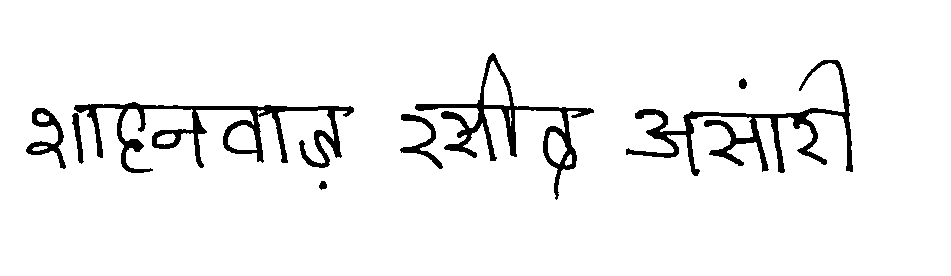 शाहनवाज़ रशीद अंसारी